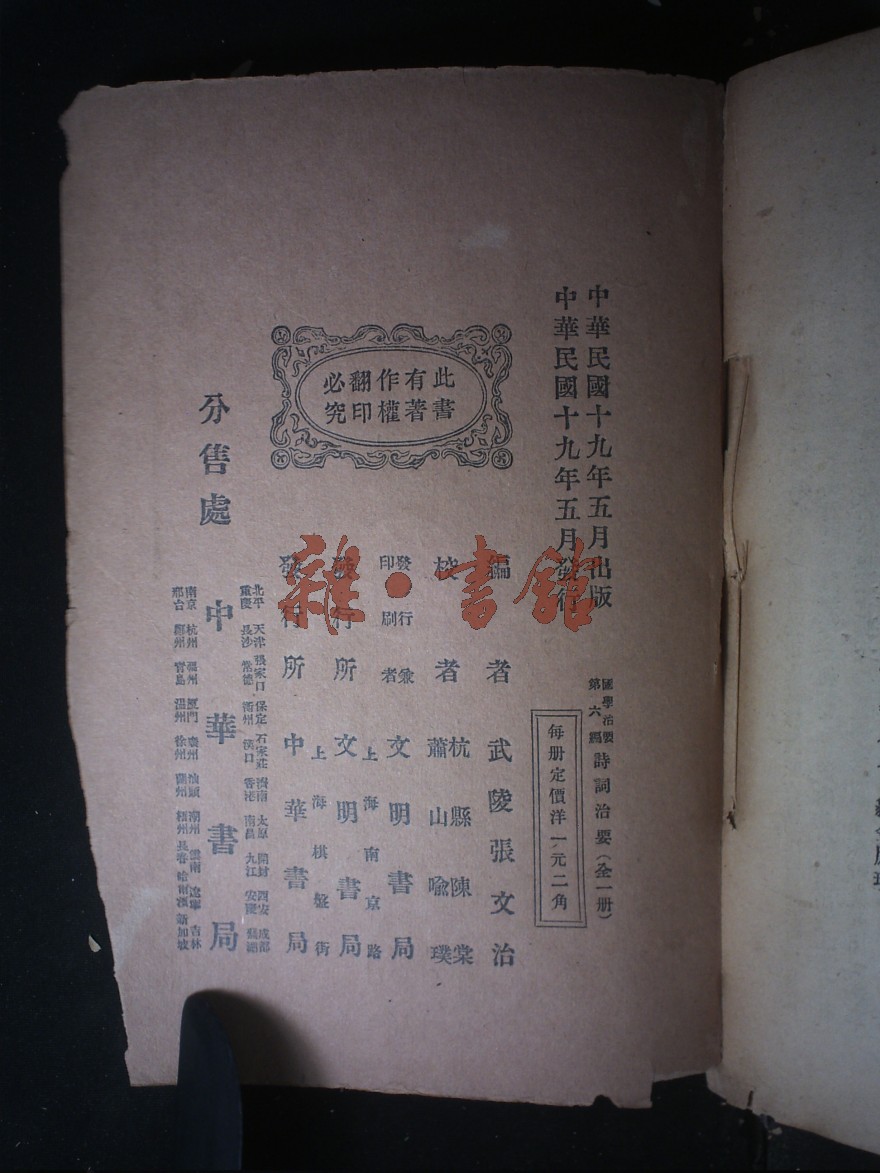 中華民國十九年五月出版
中華民國十九年五月發行
國學治要
第六編
詩詞治要（全一册）
每册定價洋一元二角
此書
有著
作權
翻印
必究
編者 武陵張文治
校者 杭縣陳棠
蕭山喻璞
發行兼
印刷者 文明書局
上海南京路
發行所 文明書局
上海棋盤街
發行所 中華書局
分售處
北平 天津 張家口 保定 石家莊 濟南 太原 開封 西安 成都
重慶 長沙 常德 衡州 漢口 香港 南昌 九江 安慶 蕪湖
中華書局
南京 杭州 福州 廈門 廣州 汕頭 潮州 雲南 遼寧 吉林
邢台 鄭州 青島 溫州 徐州 蘭州 梧州 長春 哈爾濱 新加坡
雜·書館